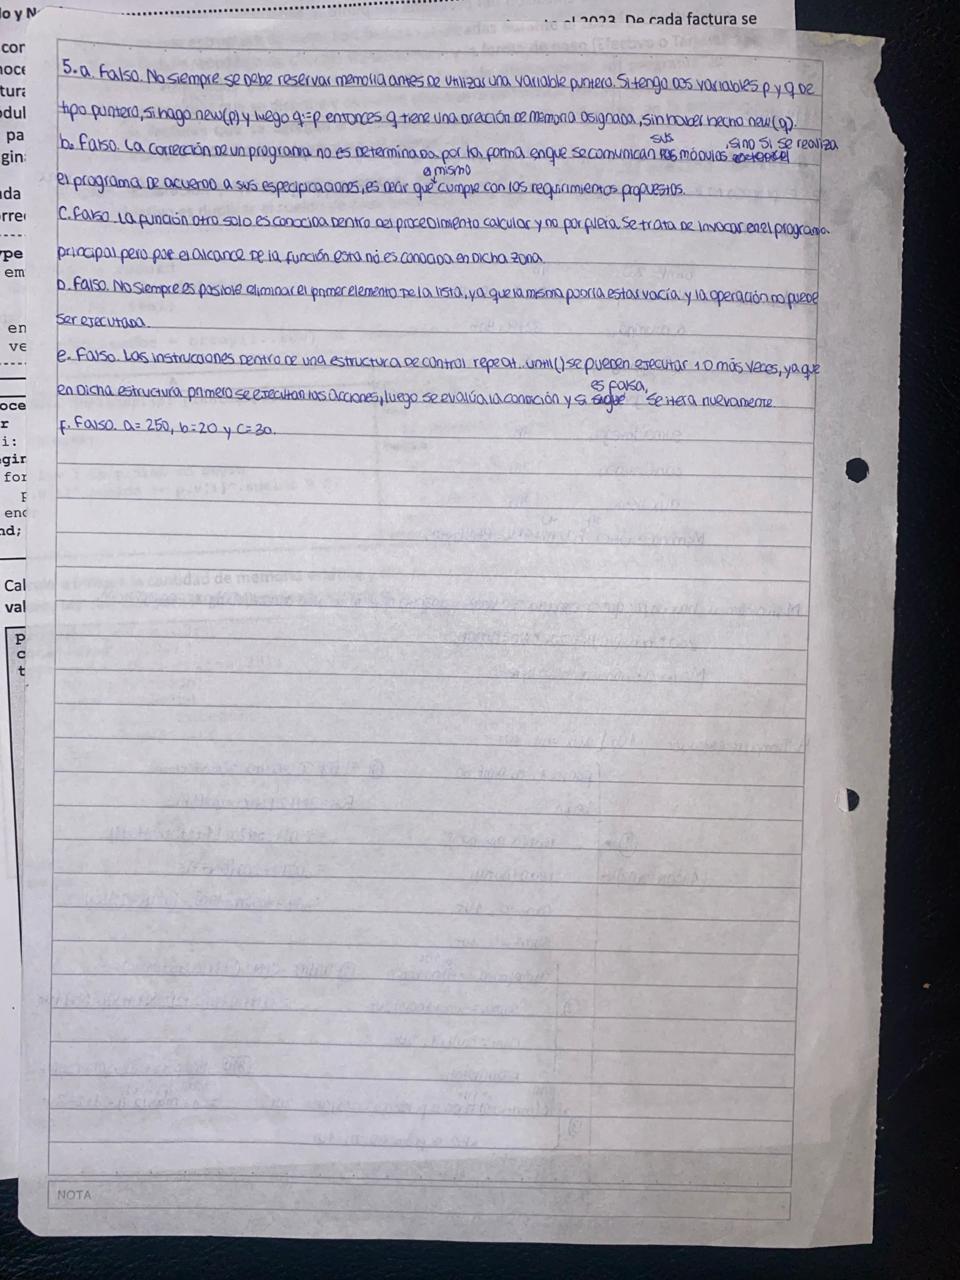 lo y N
el 2023. De cada factura se
cor
noce
tura
odul
pa
gin
ada
orre
ype
em
en
ve
oce
r
i:
gir
for
p
end
nd;
Cal
val
p
c
t
5.a. Falso. No siempre se debe reservar memoria antes de utilizar una variable puntero. Si tengo dos variables p y q de
tipo puntero, si hago new(p) y luego q:=p entonces q tiene una dirección de memoria asignada, sin haber hecho new(q).
b. Falso. La corrección de un programa no es determinada por la forma en que se comunican sus módulos, sino si se realiza
el programa de acuerdo a sus especificaciones, es decir que el mismo cumple con los requirimientos propuestos.
C. Falso. La función otro solo es conocida dentro del procedimiento calcular y no por fuera. Se trata de invocar en el programa
principal pero por el alcance de la función esta no es conocida en dicha zona.
D. Falso. No siempre es posible eliminar el primer elemento de la lista, ya que la misma podría estar vacía y la operación no puede
ser ejecutada.
e. Falso. Las instrucciones dentro de una estructura de control repeat..until() se pueden ejecutar 1 o más veces, ya que
en dicha estructura primero se ejecutan las acciones, luego se evalúa la condición y si es falsa, se itera nuevamente.
f. Falso. a= 250, b=20 y c=30.
NOTA